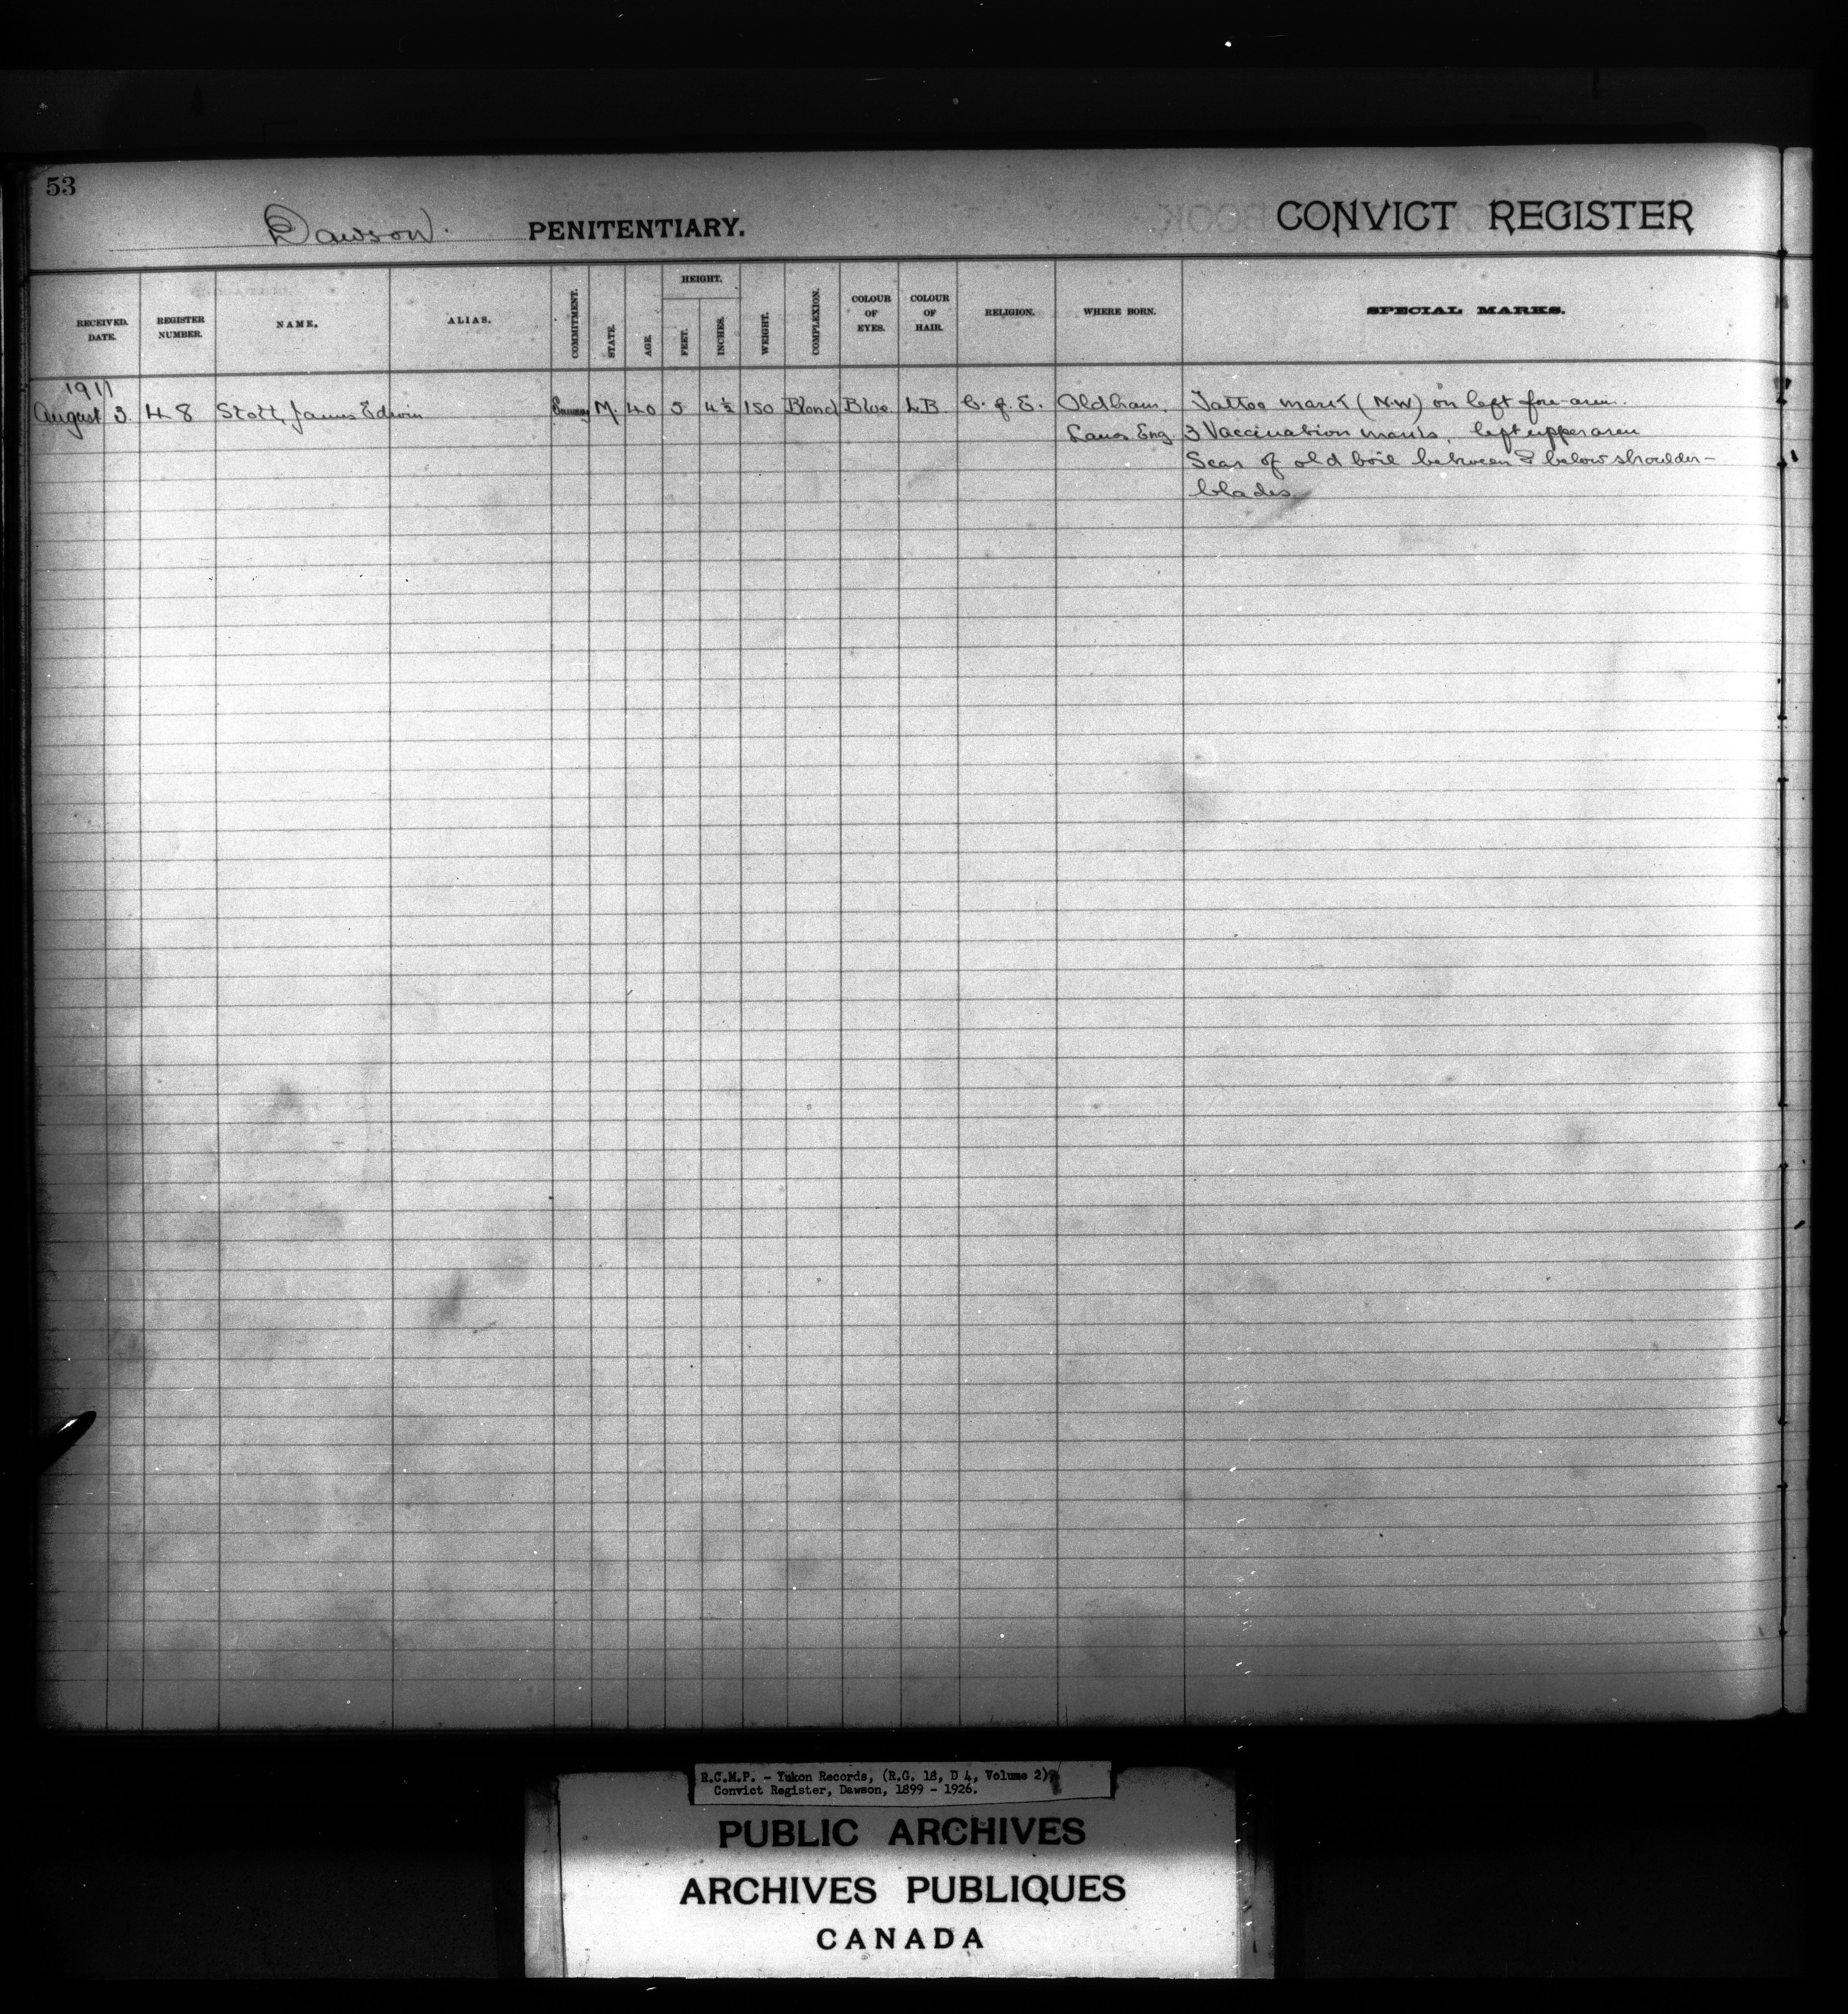 53
Dawson PENITENTIARY. CONVICT REGISTER
RECEIVED. DATE.
REGISTER NUMBER.
NAME.
ALIAS.
COMMITMENT.
STATE.
AGE.
HEIGHT.
FEET.
INCHES.
WEIGHT.
COMPLEXION.
COLOUR OF EYES.
COLOUR OF HAIR.
RELIGION.
WHERE BORN.
SPECIAL MARKS.
1911
August 3. 48 Stott, James Edwin M. 40 5 4½ 150 Blond Blue L.B. C. of E. Oldham. Tattoo mark (N.W) on left fore-arm.
Lancs Eng 3 Vaccination marks. left upper arm
Scar of old boil between & below shoulder-
blades.
R.C.M.P. - Yukon Records, (R.G. 18, D 4, Volume 2),
Convict Register, Dawson, 1899 - 1926.
PUBLIC ARCHIVES
ARCHIVES PUBLIQUES
CANADA